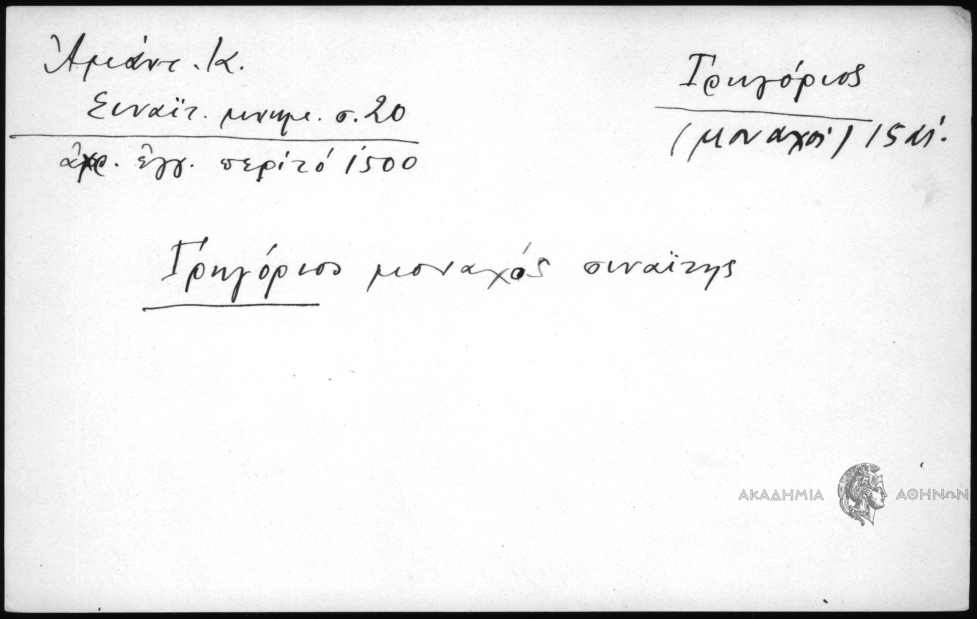 Ἀμάντ. Κ.
Σιναϊτ. μνημ. σ. 20
ἀχρ. ἔγγ. περὶ τὸ 1500
Γρηγόριος
(μοναχός) 15 αἰ.
Γρηγόριος μοναχὸς σιναΐτης
ΑΚΑΔΗΜΙΑ ΑΘΗΝΩΝ